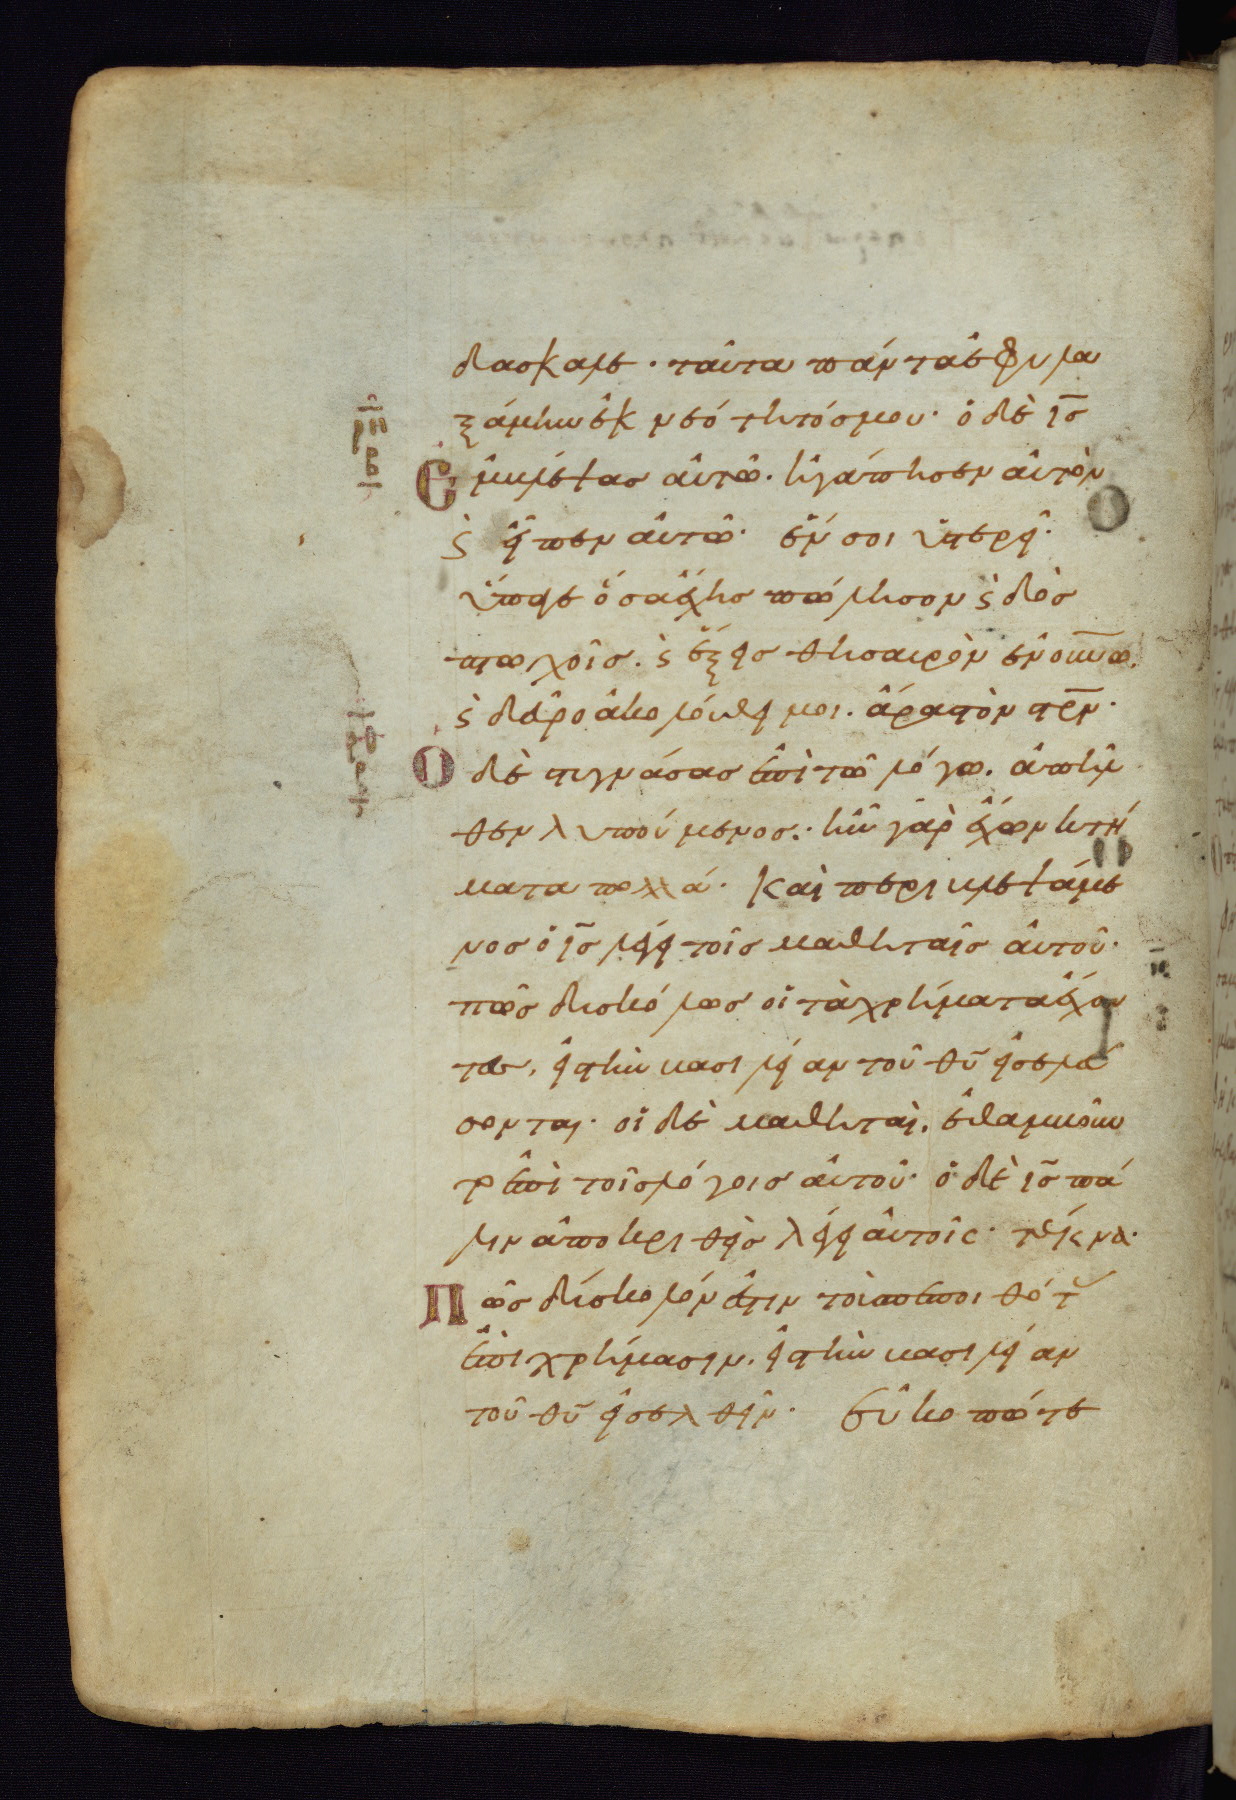 δάσκαλε· ταῦτα πάντα ἐφυλα
ξάμην ἐκ νεότητός μου· ὁ δὲ ι̅ς̅
Ἐμβλέψας αὐτῶ· ἠγάπησεν αὐτὸν
ϛ εἶπεν αὐτῶ· ἕν σοι ὑστερεῖ·
ὕπαγε ὅσα ἔχεις πώλησον ϛ δὸς
πτωχοῖς· ϛ ἕξεις θησαυρὸν ἐν ο̅υ̅ν̅ω̅.
ϛ δεῦρο ἀκολούθει μοι. ἄρας τὸν σ̅τ̅ρ̅ν̅·
Ὁ δὲ στυγνάσας ἐπὶ τῶ λόγω. ἀπῆλ
θεν λυπούμενος· ἦν γὰρ ἔχων κτή
ματα πολλά· Καὶ περιβλεψάμε
νος ὁ ι̅ς̅ λέγει τοῖς μαθηταῖς αὐτοῦ·
πῶς δυσκόλως οἱ τὰ χρήματα ἔχον
τες, εἰς τὴν βασιλείαν τοῦ θ̅υ̅ εἰσελεύ
σονται· οἱ δὲ μαθηταὶ, ἐθαμβοῦν
το ἐπὶ τοῖς λόγοις αὐτοῦ· ὁ δὲ ι̅ς̅ πά
λιν ἀποκριθεὶς λέγει αὐτοῖς· τέκνα·
Πῶς δύσκολόν ἐστιν τοὺς πεποιθότ
ἐπὶ χρήμασιν. εἰς τὴν βασιλείαν
τοῦ θ̅υ̅ εἰσελθεῖν· εὐκοπώτε